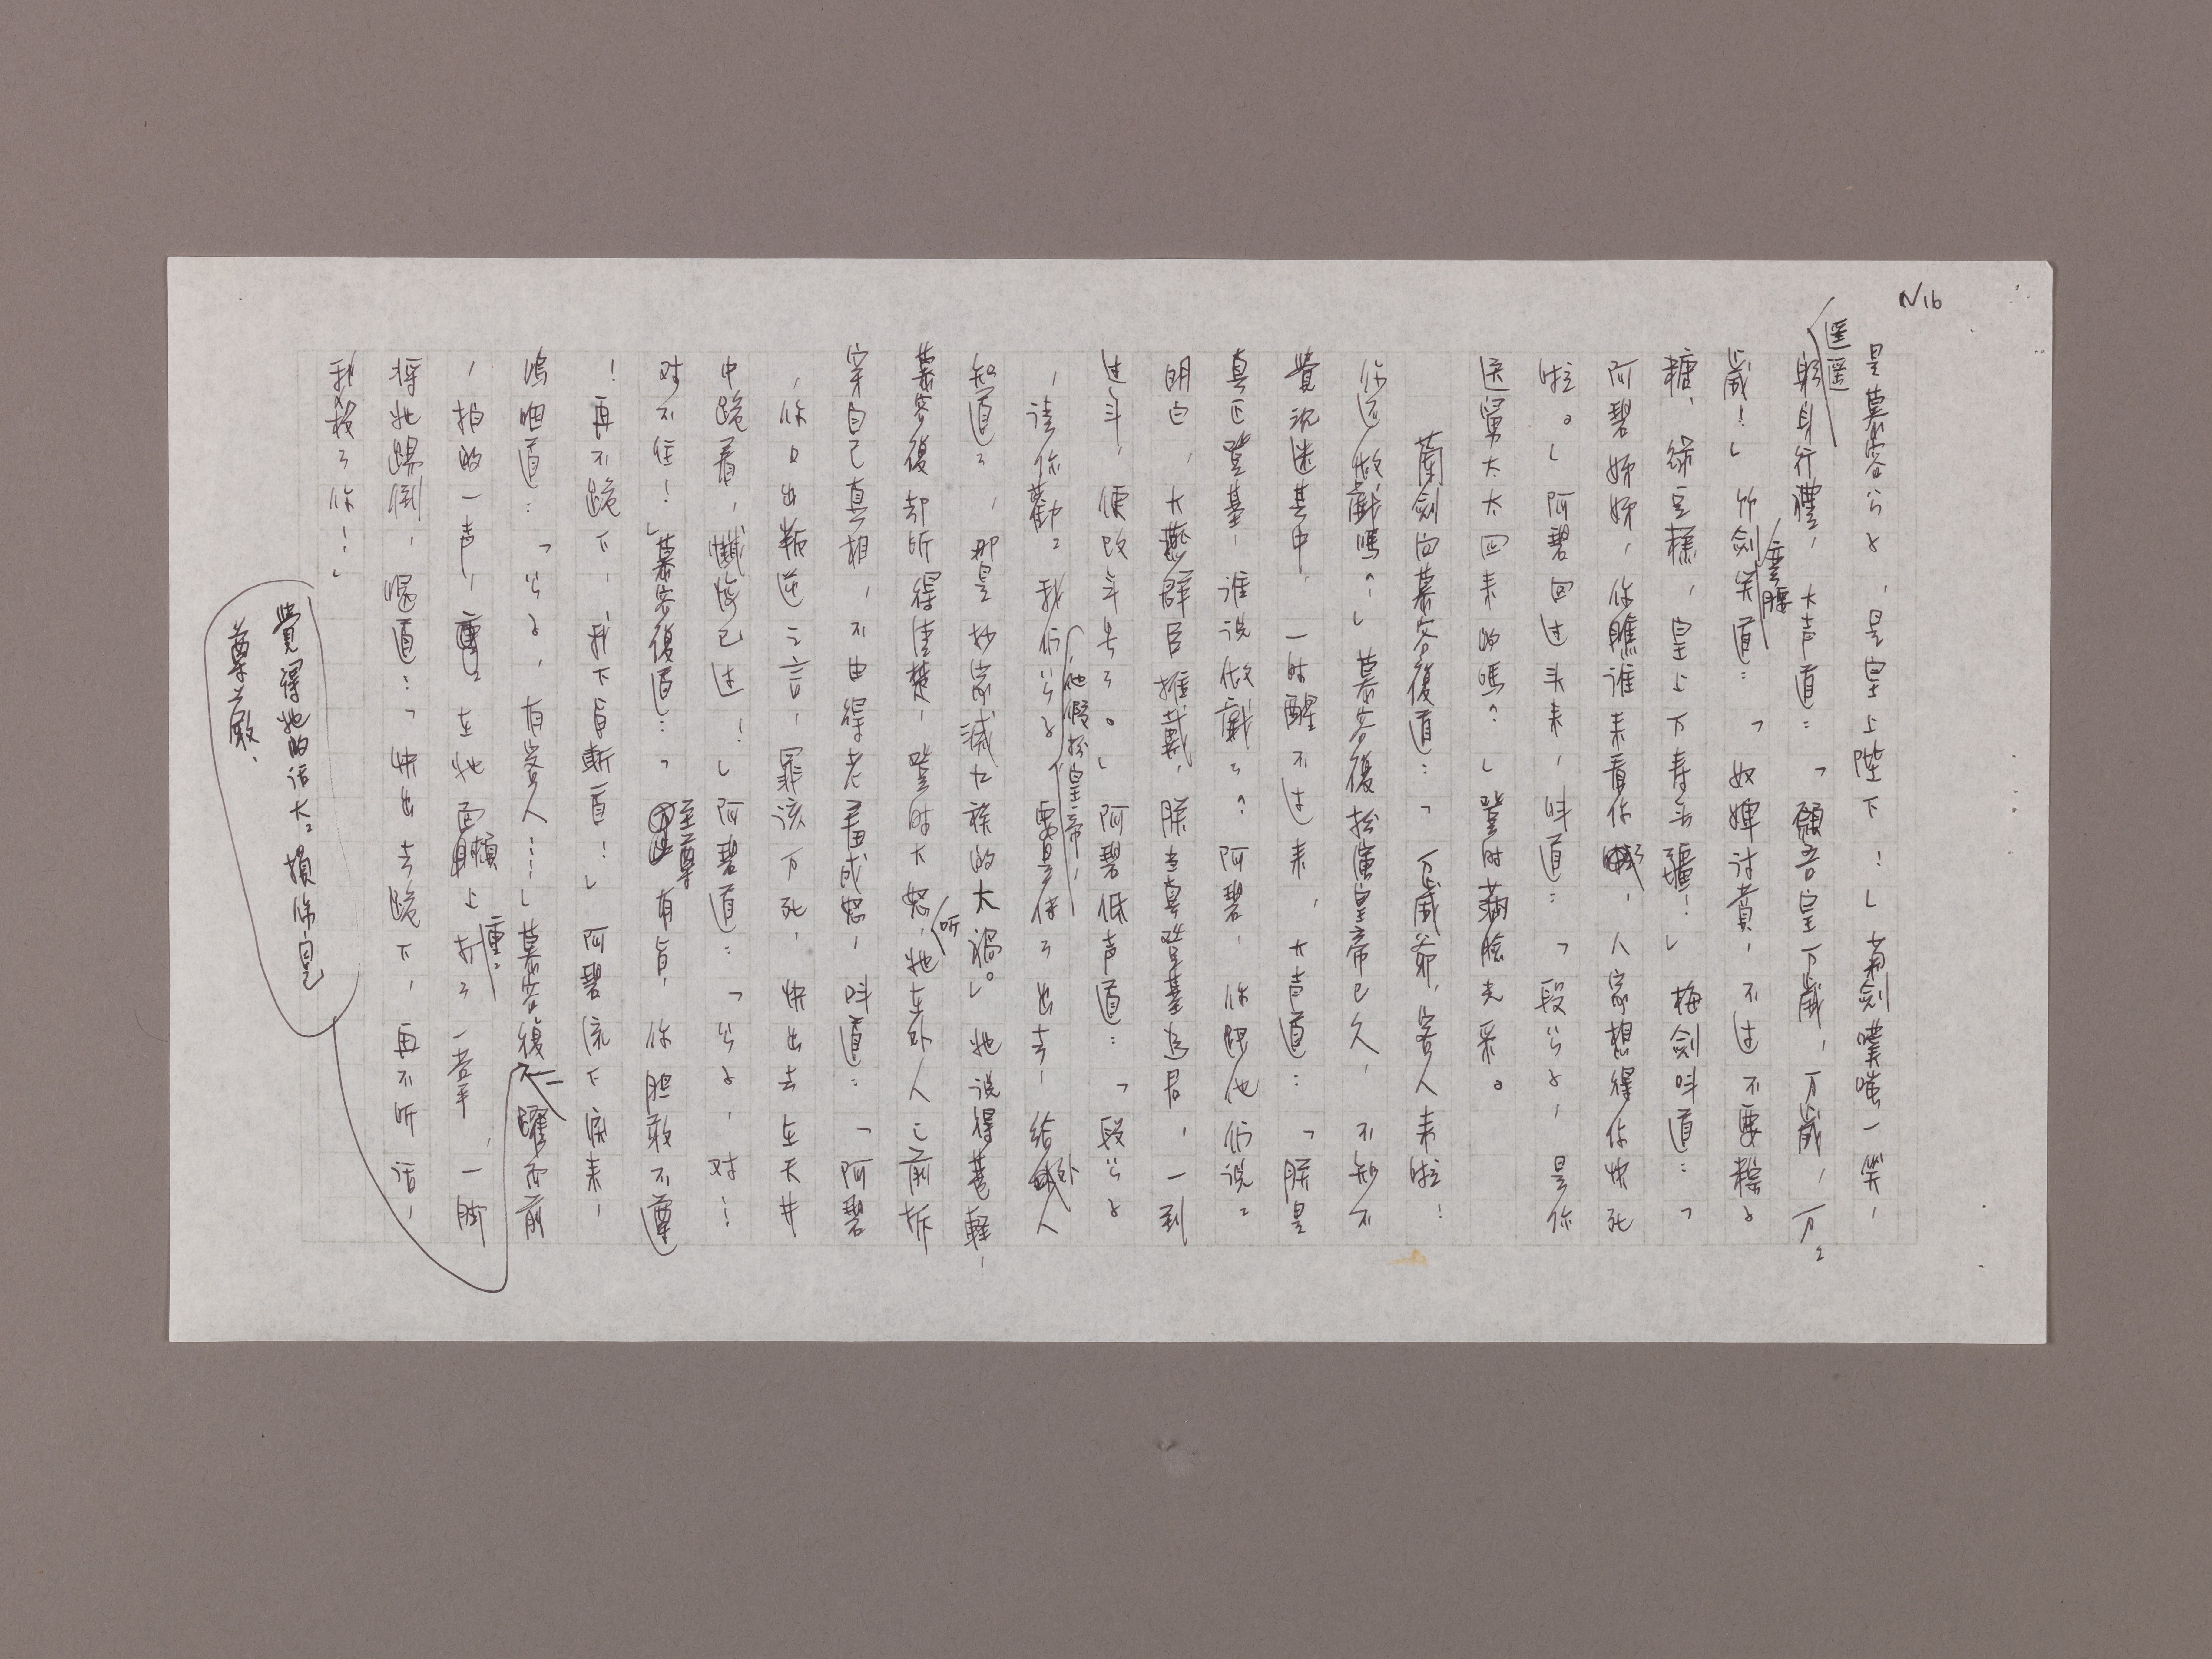 N16
是慕容公子，是皇上陛下！」菊劍噗嗤一笑，
遥遥
躬身行禮，大声道：「願吾皇万歲，万歲，万々
歲！」竹劍笑道：「奴婢討賞，不过不要糉子
彎腰
糖、綠豆糕，皇上万寿無疆！」梅劍叫道：「
阿碧姊姊，你瞧誰来看你，人家想得你快死
啦。」阿碧回过头来，叫道：「段公子，是你
送舅太太回来的嗎？」登時滿臉光采。
蘭劍向慕容復道：「万歲爺，客人来啦！
你还做戲嗎？」慕容復扮演皇帝已久，不知不
覺沉迷其中，一时醒不过来，大声道：「朕是
真正登基，誰说做戲了？阿碧，你跟他们说
明白，大燕群臣推戴，朕是真登基為君，一到
过年，便改年号了。」阿碧低声道：「段公子
，請你勸勸我们公子，要是傳了出去，給外人
他假扮皇帝，
知道了，那是抄家滅九族的大禍。」她说得甚輕，
慕容復却听得清楚，登时大怒，听她在外人之前拆
穿自己真相，不由得老羞成怒，叫道：「阿碧
，你口出叛逆之言，罪该万死，快出去在天井
中跪着，懺悔己过！」阿碧道：「公子，对！
对不住！」慕容復道：「至尊有旨，你胆敢不遵
！再不跪下，我下旨斬首！」阿碧流下淚来，
嗚咽道：「公子，有客人……」慕容復躍而前
，拍的一声，重重在她面頰上打了一掌，一脚
將她踢倒，喝道：「快出去跪下，再不听话，
我殺了你！」
覺得她的话大大損係自己
尊嚴，